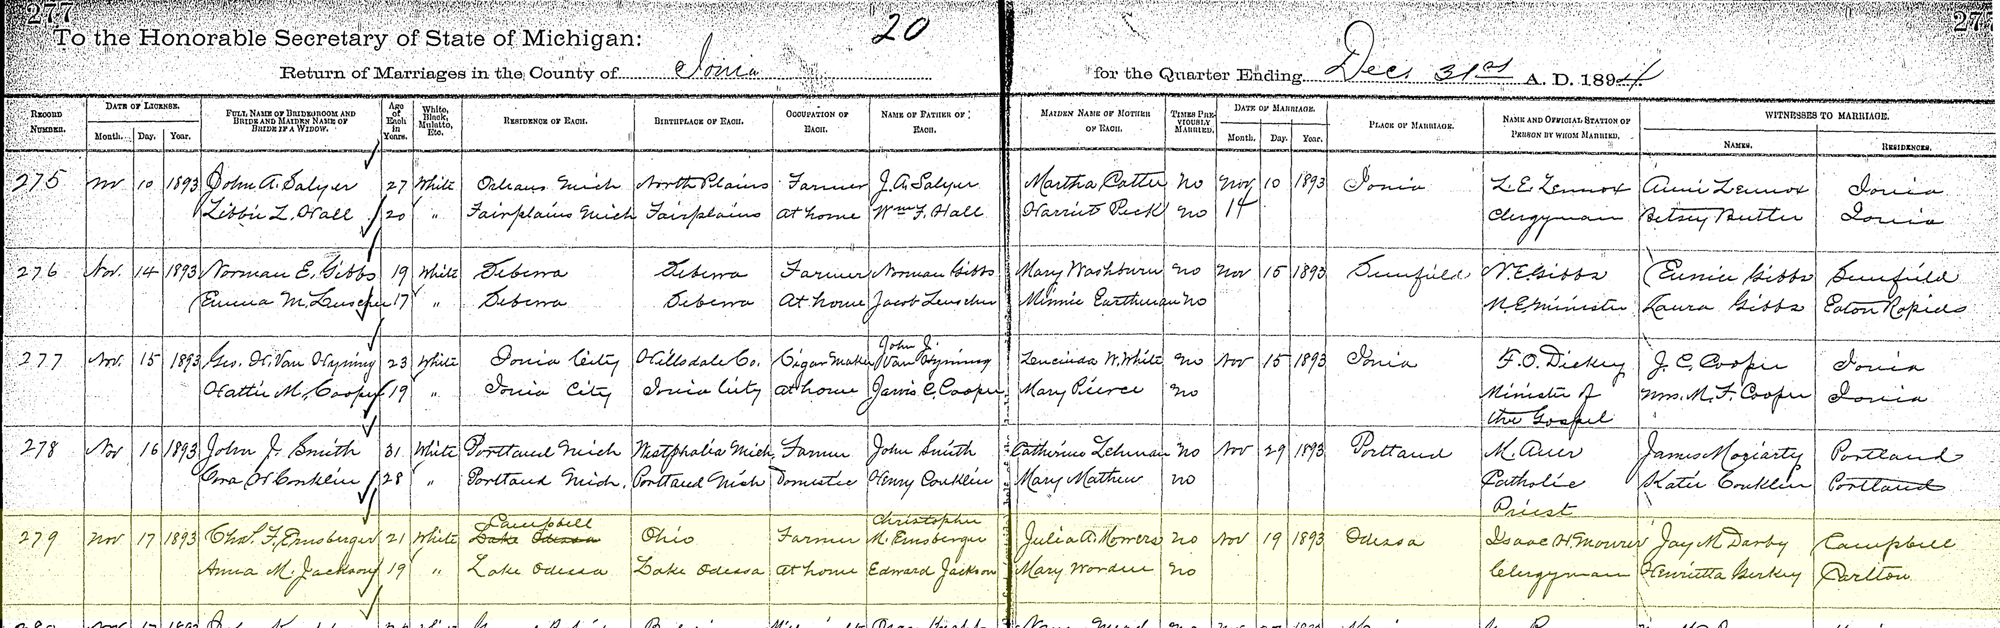 277 20 277
To the Honorable Secretary of State of Michigan:
Return of Marriages in the County of Ionia for the Quarter Ending Dec 31st A. D. 1894
RECORD NUMBER. DATE OF LICENSE. Month. Day. Year. FULL NAME OF BRIDEGROOM AND BRIDE AND MAIDEN NAME OF BRIDE IF A WIDOW. Age of Each in Years. White, Black, Mulatto, Etc. RESIDENCE OF EACH. BIRTHPLACE OF EACH. OCCUPATION OF EACH. NAME OF FATHER OF EACH. MAIDEN NAME OF MOTHER OF EACH. TIMES PREVIOUSLY MARRIED. DATE OF MARRIAGE. Month. Day. Year. PLACE OF MARRIAGE. NAME AND OFFICIAL STATION OF PERSON BY WHOM MARRIED. WITNESSES TO MARRIAGE. NAMES. RESIDENCES.
275 Nov 10 1893 John A. Salyer 27 White Orleans Mich North Plains Farmer J. A. Salyer Martha Catter no Nov 10 1893 Ionia L. E. Lennox Anni Lennox Ionia
Libbie L. Hall 20 " Fairplains Mich Fairplains at home Wm F. Hall Harriet Peck no 14 Clergyman Betsey Butler Ionia
276 Nov. 14 1893 Norman E. Gibbs 19 White Sebewa Sebewa Farmer Norman Gibbs Mary Washburn no Nov 15 1893 Sunfield N. E. Gibbs Eunice Gibbs Sunfield
Emma M. Leuscher 17 " Sebewa Sebewa at home Jacob Leuscher Minnie Earthman no M. E. Minister Laura Gibbs Eaton Rapids
John J.
277 Nov. 15 1893 Geo. H. Van Wyning 23 White Ionia City Hillsdale Co. Cigar Maker Van Wyning Lucinda W. White no Nov 15 1893 Ionia F. O. Dickey J. C. Cooper Ionia
Hattie M. Cooper 19 " Ionia City Ionia City at home Jarvis C. Cooper Mary Pierce no Minister of Mrs. M. F. Cooper Ionia
the Gospel
278 Nov 16 1893 John J. Smith 31 White Portland Mich Westphalia Mich. Farmer John Smith Catherine Lehman no Nov 29 1893 Portland M. Auer James Moriarty Portland
Cora W Conklin 28 " Portland Mich. Portland Mich Domestic Henry Conklin Mary Mathew no Catholic Katie Conklin Portland
Priest
Campbell Christopher
279 Nov 17 1893 Chas. F. Ernsberger 21 White Lake Odessa Ohio Farmer M. Ernsberger Julia A. Mowers no Nov 19 1893 Odessa Isaac H. Mourer Jay M Darby Campbell
Anna M. Jackson 19 " Lake Odessa Lake Odessa at home Edward Jackson Mary Worden no Clergyman Henrietta Gerkey Carlton